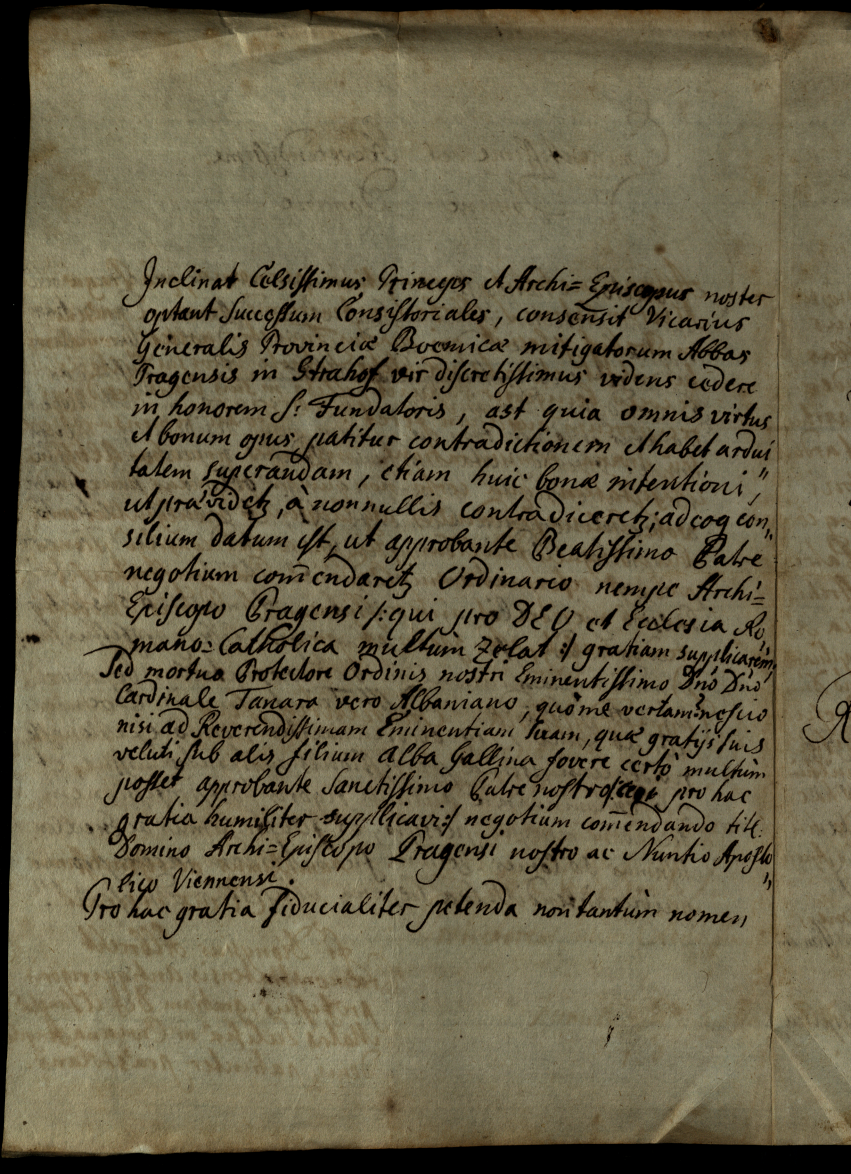 Inclinat Celsissimus Princeps et Archi= Episcopus noster
optant Successum Consistoriales, consensit Vicarius
Generalis Provinciæ Boemicæ mitigatorum Abbas
Pragensis in Strahof vir discretissimus videns cedere
in honorem S: Fundatoris, ast quia omnis virtus
et bonum opus patitur contradictionem et habet ardui
tatem superandam, etiam huic bonæ intentioni,,
ut prævidetʒ, à nonnullis contradiceretʒ; adeoq con,,
silium datum est, ut approbante Beatissimo Patre
negotium com̄endaretʒ Ordinario nempe Archi=
Episcopo Pragensi /: qui pro DEO et Ecclesia Ro,
mano= Catholica multum Zelat :/ gratiam supplicarem,
Sed mortuo Protectore Ordinis nostri Eminentissimo Dn̄o Dn̄o
Cardinale Tanara vero Albaniano, quò me vertam? nescio
nisi ad Reverendissimam Eminentiam tuam, quæ gratijs suis
veluti sub alis filium Alba Gallina fovere certò multùm
posset approbante Sanctissimo Patre nostro pro hac
gratia humiliter supplicavi :/ negotium com̄endando tit:
Domino Archi= Episcopo Pragensi nostro ac Nuntio Aposto
lico Viennensi.
Pro hac gratia fiducialiter petenda non tantùm nomen